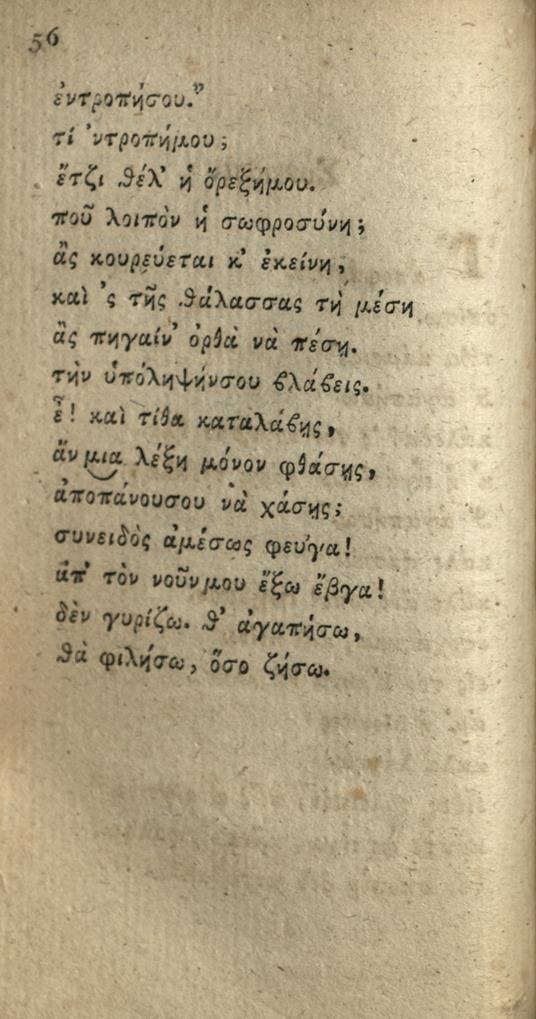 56
ἐντροπήσου."
τί 'ντροπήμου;
ἔτζι θέλ' ἡ ὄρεξήμου.
ποῦ λοιπὸν ἡ σωφροσύνη;
ἂς κουρεύεται κ' ἐκείνη,
καὶ 'ς τῆς θάλασσας τὴ μέση
ἂς πηγαίν' ὀρθὰ νὰ πέσῃ.
τὴν ὑπόληψήνσου βλάβεις.
ἒ! καὶ τίθα καταλάβῃς,
ἄν μια λέξη μόνον φθάσῃς,
ἀποπάνουσου νὰ χάσῃς;
συνειδὸς ἀμέσως φεύγα!
ἀπ' τὸν νοῦνμου ἔξω ἔβγα!
δὲν γυρίζω. θ' ἀγαπήσω,
θὰ φιλήσω, ὅσο ζήσω.